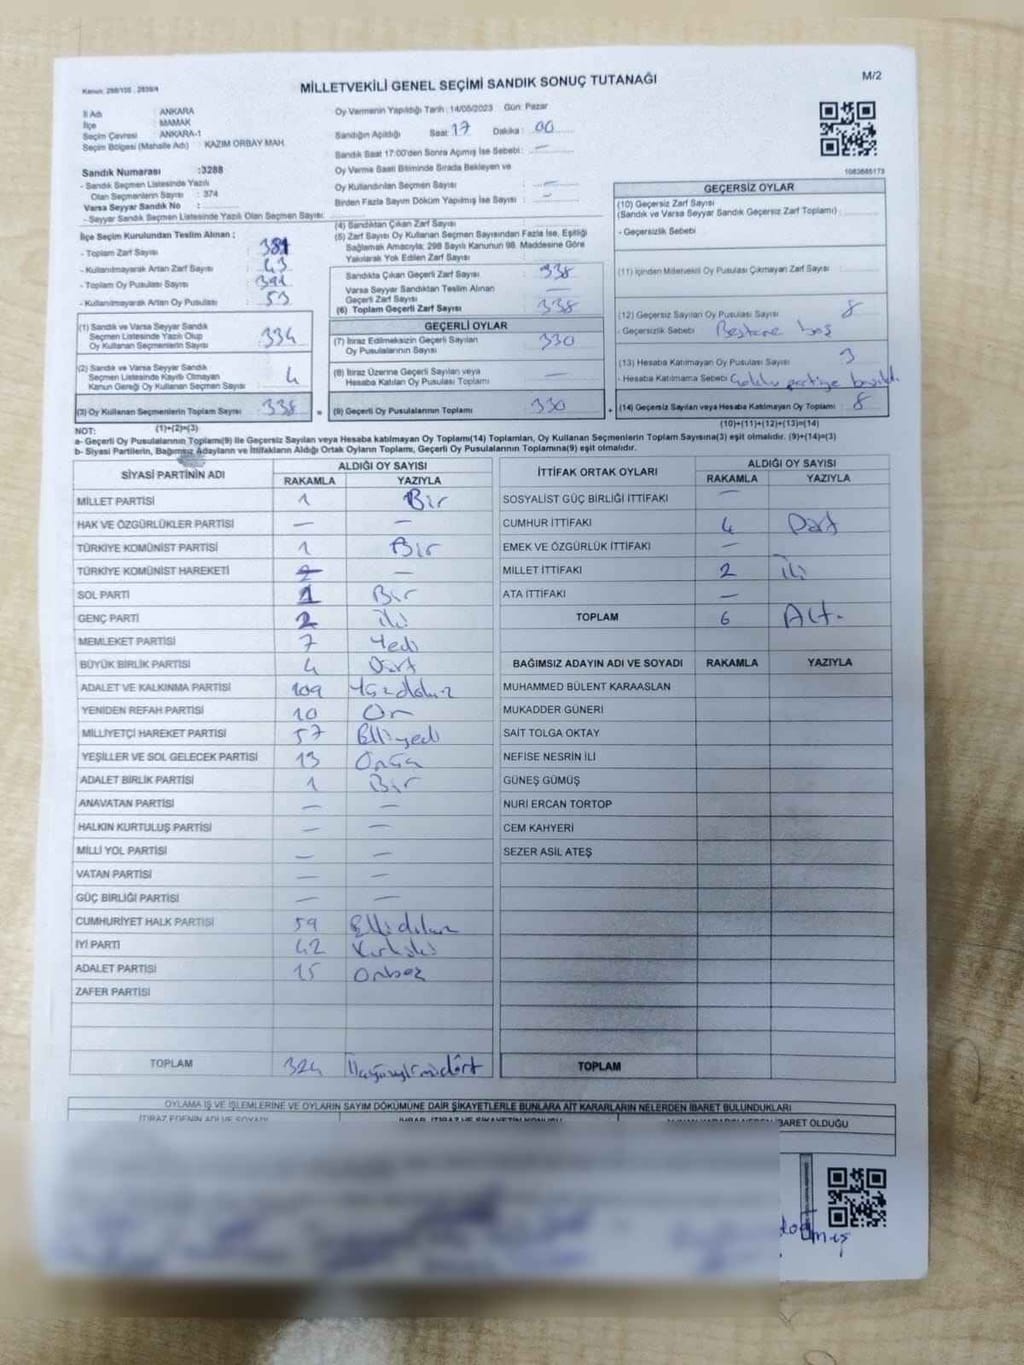 Kanun: 298/105 , 2839/4
MİLLETVEKİLİ GENEL SEÇİMİ SANDIK SONUÇ TUTANAĞI
M/2
İl Adı : ANKARA
İlçe : MAMAK
Seçim Çevresi : ANKARA-1
Seçim Bölgesi (Mahalle Adı) : KAZIM ORBAY MAH.
Sandık Numarası :3288
- Sandık Seçmen Listesinde Yazılı
Olan Seçmenlerin Sayısı : 374
Varsa Seyyar Sandık No :
- Seyyar Sandık Seçmen Listesinde Yazılı Olan Seçmen Sayısı:
Oy Vermenin Yapıldığı Tarih : 14/05/2023 Gün: Pazar
Sandığın Açıldığı Saat: 17 Dakika : 00
Sandık Saat 17:00'den Sonra Açılmış İse Sebebi: —
Oy Verme Saati Bitiminde Sırada Bekleyen ve
Oy Kullandırılan Seçmen Sayısı : —
Birden Fazla Sayım Döküm Yapılmış İse Sayısı : —
İlçe Seçim Kurulundan Teslim Alınan ;
- Toplam Zarf Sayısı : 381
- Kullanılmayarak Artan Zarf Sayısı : 43
- Toplam Oy Pusulası : 391
- Kullanılmayarak Artan Oy Pusulası : 53
(1) Sandık ve Varsa Seyyar Sandık
Seçmen Listesinde Yazılı Olup
Oy Kullanan Seçmenlerin Sayısı : 334
(2) Sandık ve Varsa Seyyar Sandık
Seçmen Listesinde Kayıtlı Olmayan
Kanun Gereği Oy Kullanan Seçmen Sayısı : 4
(3) Oy Kullanan Seçmenlerin Toplam Sayısı : 338 =
(1)+(2)=(3)
(4) Sandıktan Çıkan Zarf Sayısı :
(5) Zarf Sayısı Oy Kullanan Seçmen Sayısından Fazla İse, Eşitliği
Sağlamak Amacıyla; 298 Sayılı Kanunun 98. Maddesine Göre
Yakılarak Yok Edilen Zarf Sayısı :
Sandıkta Çıkan Geçerli Zarf Sayısı : 338
Varsa Seyyar Sandıktan Teslim Alınan
Geçerli Zarf Sayısı : —
(6) Toplam Geçerli Zarf Sayısı : 338
GEÇERLİ OYLAR
(7) İtiraz Edilmeksizin Geçerli Sayılan
Oy Pusulalarının Sayısı : 330
(8) İtiraz Üzerine Geçerli Sayılan veya
Hesaba Katılan Oy Pusulası Toplamı : —
(9) Geçerli Oy Pusulalarının Toplamı : 330 +
1083685173
GEÇERSİZ OYLAR
(10) Geçersiz Zarf Sayısı
(Sandık ve Varsa Seyyar Sandık Geçersiz Zarf Toplamı) :
- Geçersizlik Sebebi
(11) İçinden Milletvekili Oy Pusulası Çıkmayan Zarf Sayısı :
(12) Geçersiz Sayılan Oy Pusulası Sayısı : 8
- Geçersizlik Sebebi
(13) Hesaba Katılmayan Oy Pusulası Sayısı : 3
- Hesaba Katılmama Sebebi
(14) Geçersiz Sayılan veya Hesaba Katılmayan Oy Toplamı : 8
(10)+(11)+(12)+(13)=(14)
NOT:
a- Geçerli Oy Pusulalarının Toplamı(9) ile Geçersiz Sayılan veya Hesaba katılmayan Oy Toplamı(14) Toplamları, Oy Kullanan Seçmenlerin Toplam Sayısına(3) eşit olmalıdır. (9)+(14)=(3)
b- Siyasi Partilerin, Bağımsız Adayların ve İttifakların Aldığı Ortak Oyların Toplamı, Geçerli Oy Pusulalarının Toplamına(9) eşit olmalıdır.
SİYASİ PARTİNİN ADI ALDIĞI OY SAYISI
RAKAMLA YAZIYLA
MİLLET PARTİSİ 1 Bir
HAK VE ÖZGÜRLÜKLER PARTİSİ — —
TÜRKİYE KOMÜNİST PARTİSİ 1 Bir
TÜRKİYE KOMÜNİST HAREKETİ —
SOL PARTİ 1 Bir
GENÇ PARTİ 2 iki
MEMLEKET PARTİSİ 7 Yedi
BÜYÜK BİRLİK PARTİSİ 4 Dört
ADALET VE KALKINMA PARTİSİ 109 Yüzdokuz
YENİDEN REFAH PARTİSİ 10 On
MİLLİYETÇİ HAREKET PARTİSİ 57 Elliyedi
YEŞİLLER VE SOL GELECEK PARTİSİ 13 Onüç
ADALET BİRLİK PARTİSİ 1 Bir
ANAVATAN PARTİSİ — —
HALKIN KURTULUŞ PARTİSİ — —
MİLLİ YOL PARTİSİ — —
VATAN PARTİSİ — —
GÜÇ BİRLİĞİ PARTİSİ — —
CUMHURİYET HALK PARTİSİ 59 Ellidokuz
İYİ PARTİ 42 Kırkiki
ADALET PARTİSİ 15 Onbeş
ZAFER PARTİSİ
TOPLAM 324 Üçyüzyirmidört
İTTİFAK ORTAK OYLARI ALDIĞI OY SAYISI
RAKAMLA YAZIYLA
SOSYALİST GÜÇ BİRLİĞİ İTTİFAKI —
CUMHUR İTTİFAKI 4 Dört
EMEK VE ÖZGÜRLÜK İTTİFAKI —
MİLLET İTTİFAKI 2 iki
ATA İTTİFAKI —
TOPLAM 6 Altı
BAĞIMSIZ ADAYIN ADI VE SOYADI RAKAMLA YAZIYLA
MUHAMMED BÜLENT KARAASLAN
MUKADDER GÜNERİ
SAİT TOLGA OKTAY
NEFİSE NESRİN İLİ
GÜNEŞ GÜMÜŞ
NURİ ERCAN TORTOP
CEM KAHYERİ
SEZER ASİL ATEŞ
TOPLAM
OYLAMA İŞ VE İŞLEMLERİNE VE OYLARIN SAYIM DÖKÜMÜNE DAİR ŞİKAYETLERLE BUNLARA AİT KARARLARIN NELERDEN İBARET BULUNDUKLARI
İTİRAZ EDENİN ADI VE SOYADI
İBARET OLDUĞU